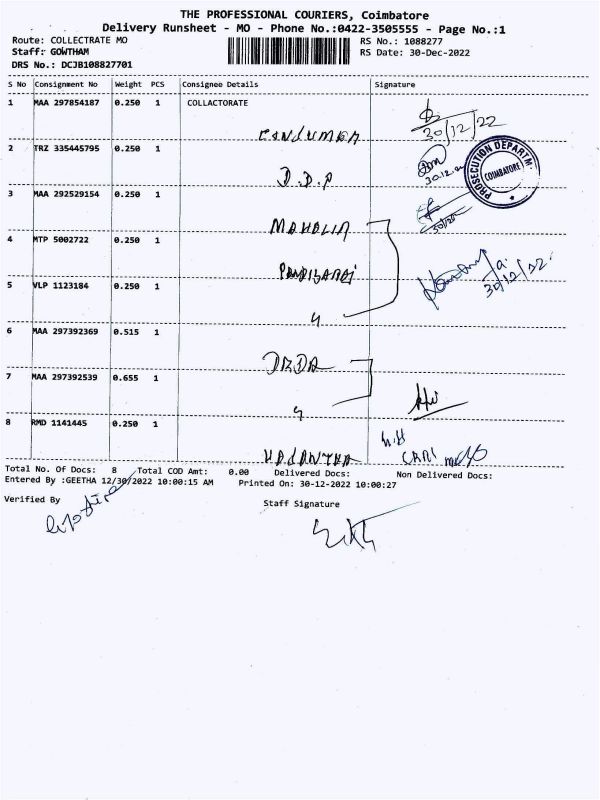 THE PROFESSIONAL COURIERS, Coimbatore
Delivery Runsheet - MO - Phone No.:0422-3505555 - Page No.:1
Route: COLLECTRATE MO RS No.: 1088277
Staff: GOWTHAM RS Date: 30-Dec-2022
DRS No.: DCJB108827701
S No Consignment No Weight PCS Consignee Details Signature
1 MAA 297854187 0.250 1 COLLACTORATE
30/12/22
2 TRZ 335445795 0.250 1
D.D.P 30.12.
PROSECUTION DEPARTM
COIMBATORE
3 MAA 292529154 0.250 1
30/12
4 MTP 5002722 0.250 1
5 VLP 1123184 0.250 1
30/12/22.
6 MAA 297392369 0.515 1
DRDA
7 MAA 297392539 0.655 1
8 RMD 1141445 0.250 1
Total No. Of Docs: 8 Total COD Amt: 0.00 Delivered Docs: Non Delivered Docs:
Entered By :GEETHA 12/30/2022 10:00:15 AM Printed On: 30-12-2022 10:00:27
Verified By Staff Signature